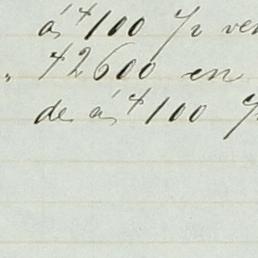 á $100 %, ven
„ $2600 en
de á $100 %